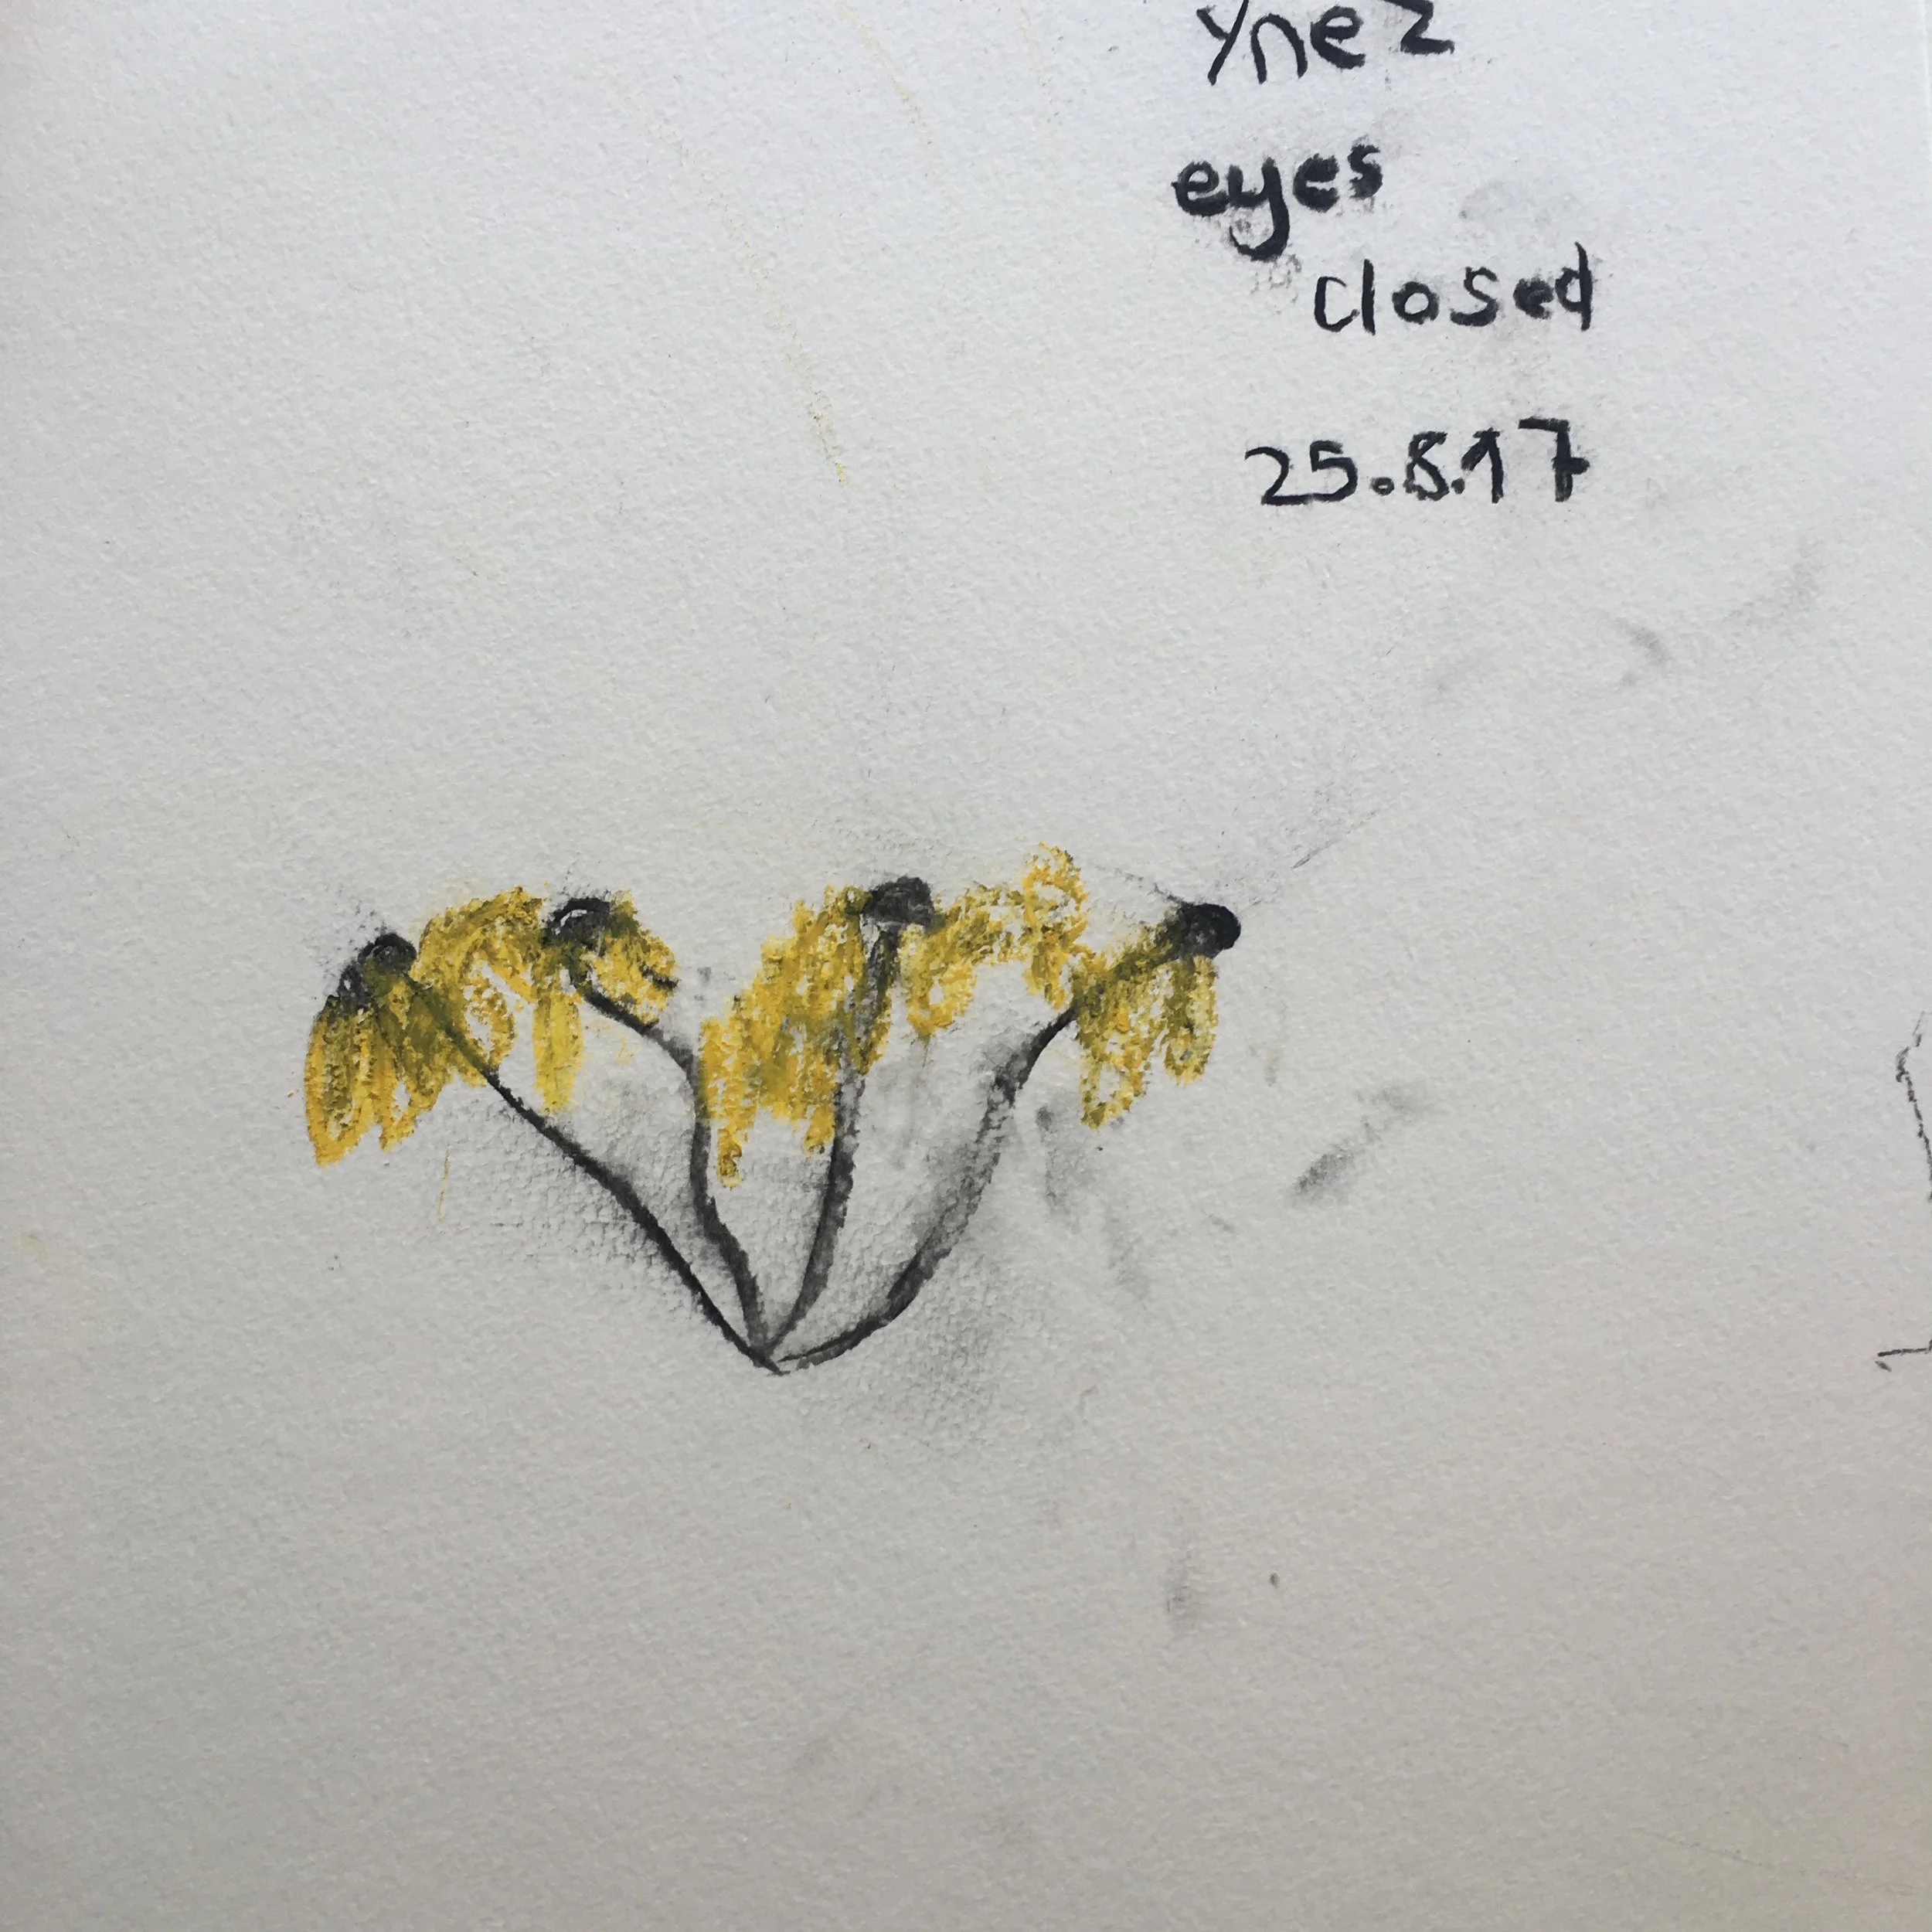 Ynez
eyes
closed
25.8.17